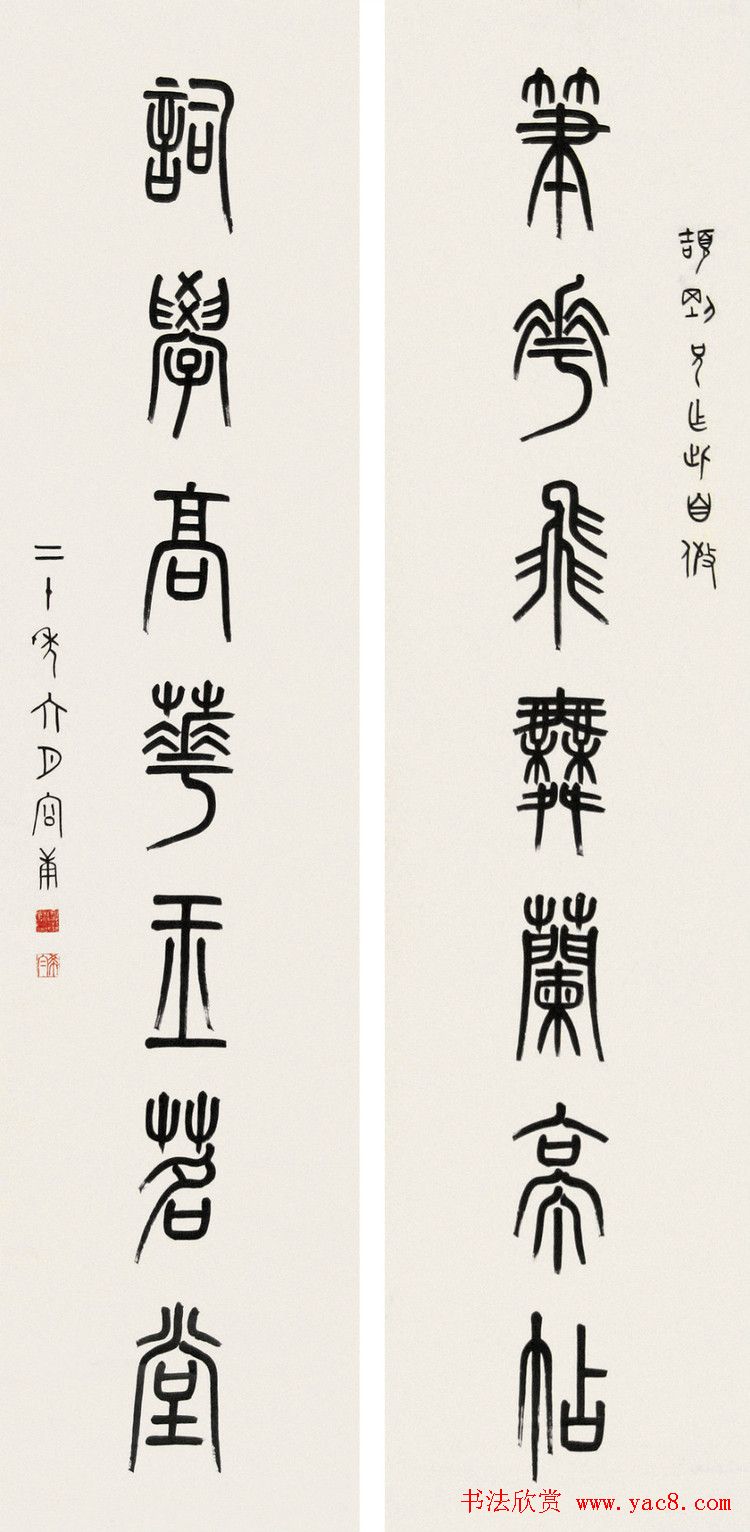 頡剛兄乍此自
筆花飛舞蘭亭帖
詞學高華玉茗堂
二十年六月容庚
书法欣赏 www.yac8.com